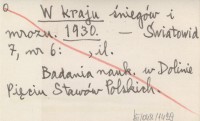 W kraju śniegów i
mrozu. 1930. — Światowid
7, nr 6: , il.
Badania nauk. w Dolinie
Pięciu Stawów Polskich.